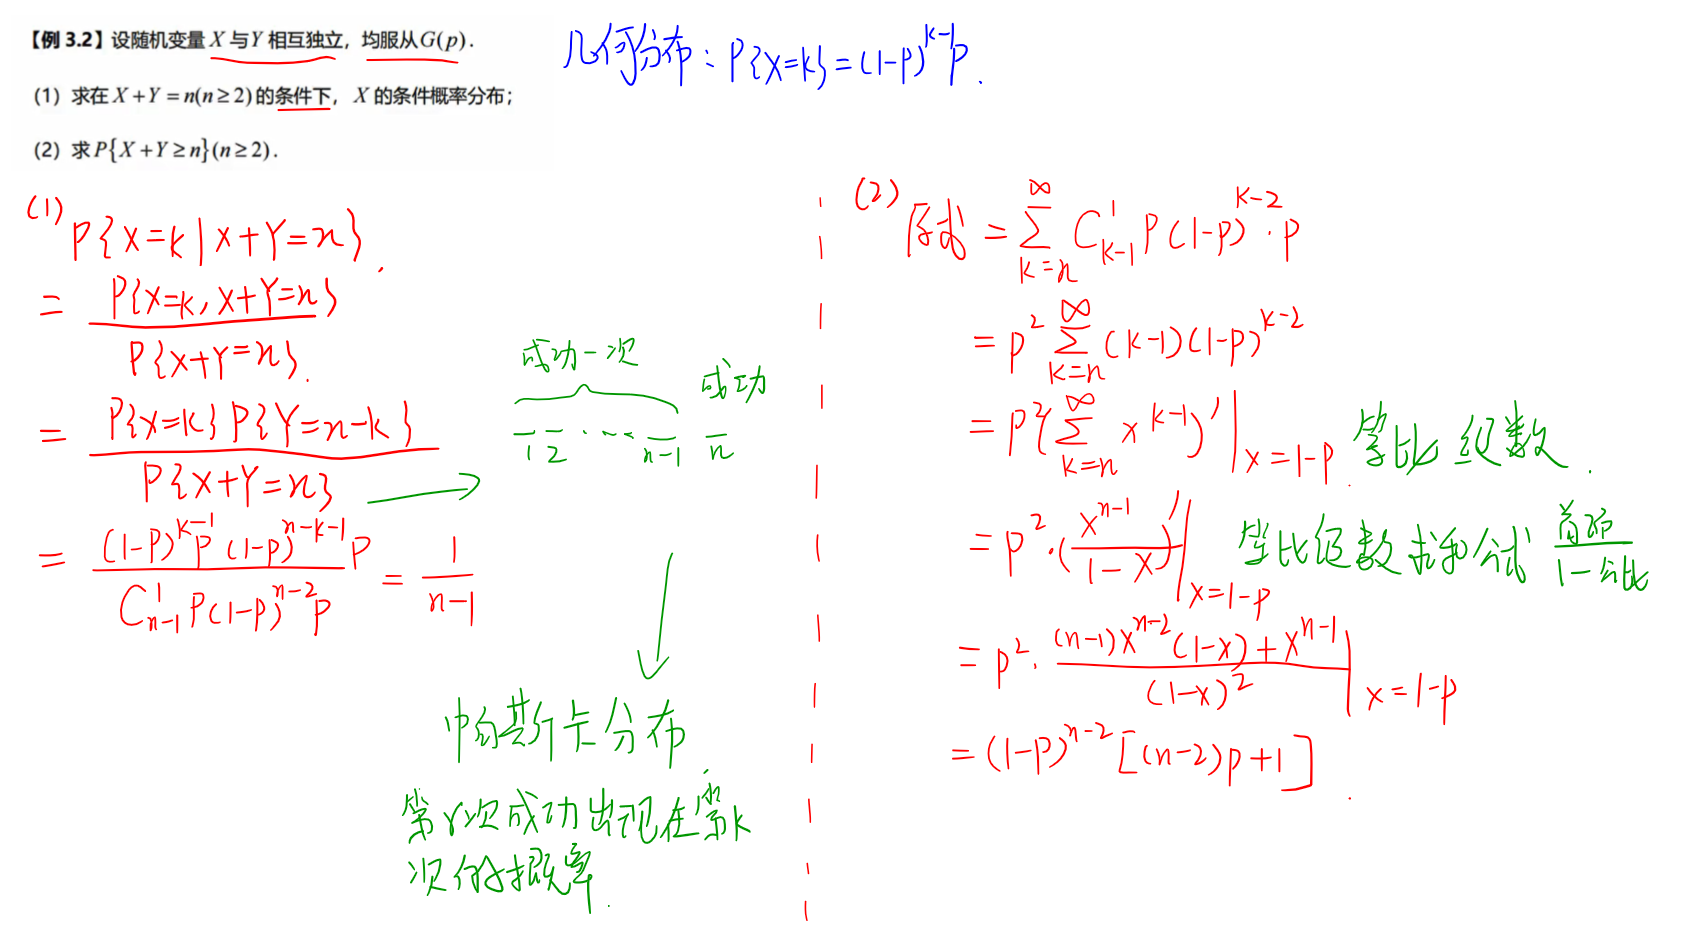 【例 3.2】设随机变量 X 与 Y 相互独立，均服从 G(p).
（1）求在 X + Y = n(n ≥ 2) 的条件下， X 的条件概率分布；
（2）求 P{X + Y ≥ n}(n ≥ 2).
几何分布：P{X=k} = (1-p)^{k-1}p.
(1)
P{X=k | X+Y=n}.
= \frac{P{X=k, X+Y=n}}{P{X+Y=n}.}
= \frac{P{X=k}P{Y=n-k}}{P{X+Y=n}}
= \frac{(1-p)^{k-1}p (1-p)^{n-k-1}p}{C_{n-1}^{1} p(1-p)^{n-2}p} = \frac{1}{n-1}
成功一次 成功
1 2 ····· n-1 n
帕斯卡分布.
第r次成功出现在第k
次的概率.
(2) 原式 = \sum_{k=n}^{∞} C_{k-1}^{1} p(1-p)^{k-2}·p
= p^2 \sum_{k=n}^{∞} (k-1)(1-p)^{k-2}
= p^2(\sum_{k=n}^{∞} x^{k-1})'|_{x=1-p}. 等比级数.
= p^2·(\frac{x^{n-1}}{1-x})'|_{x=1-p} 等比级数求和公式 \frac{首项}{1-公比}
= p^2· \frac{(n-1)x^{n-2}(1-x)+x^{n-1}}{(1-x)^2}|_{x=1-p}
= (1-p)^{n-2}[(n-2)p+1].